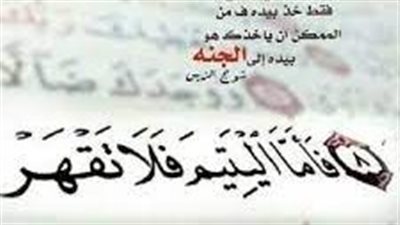 فقط خذ بيده ف من
الممكن ان ياخذك هو
بيده إلى الجنه
ووجدك ضالا
٨ فَأَمَّا الْيَتِيمَ فَلَا تَقْهَرْ